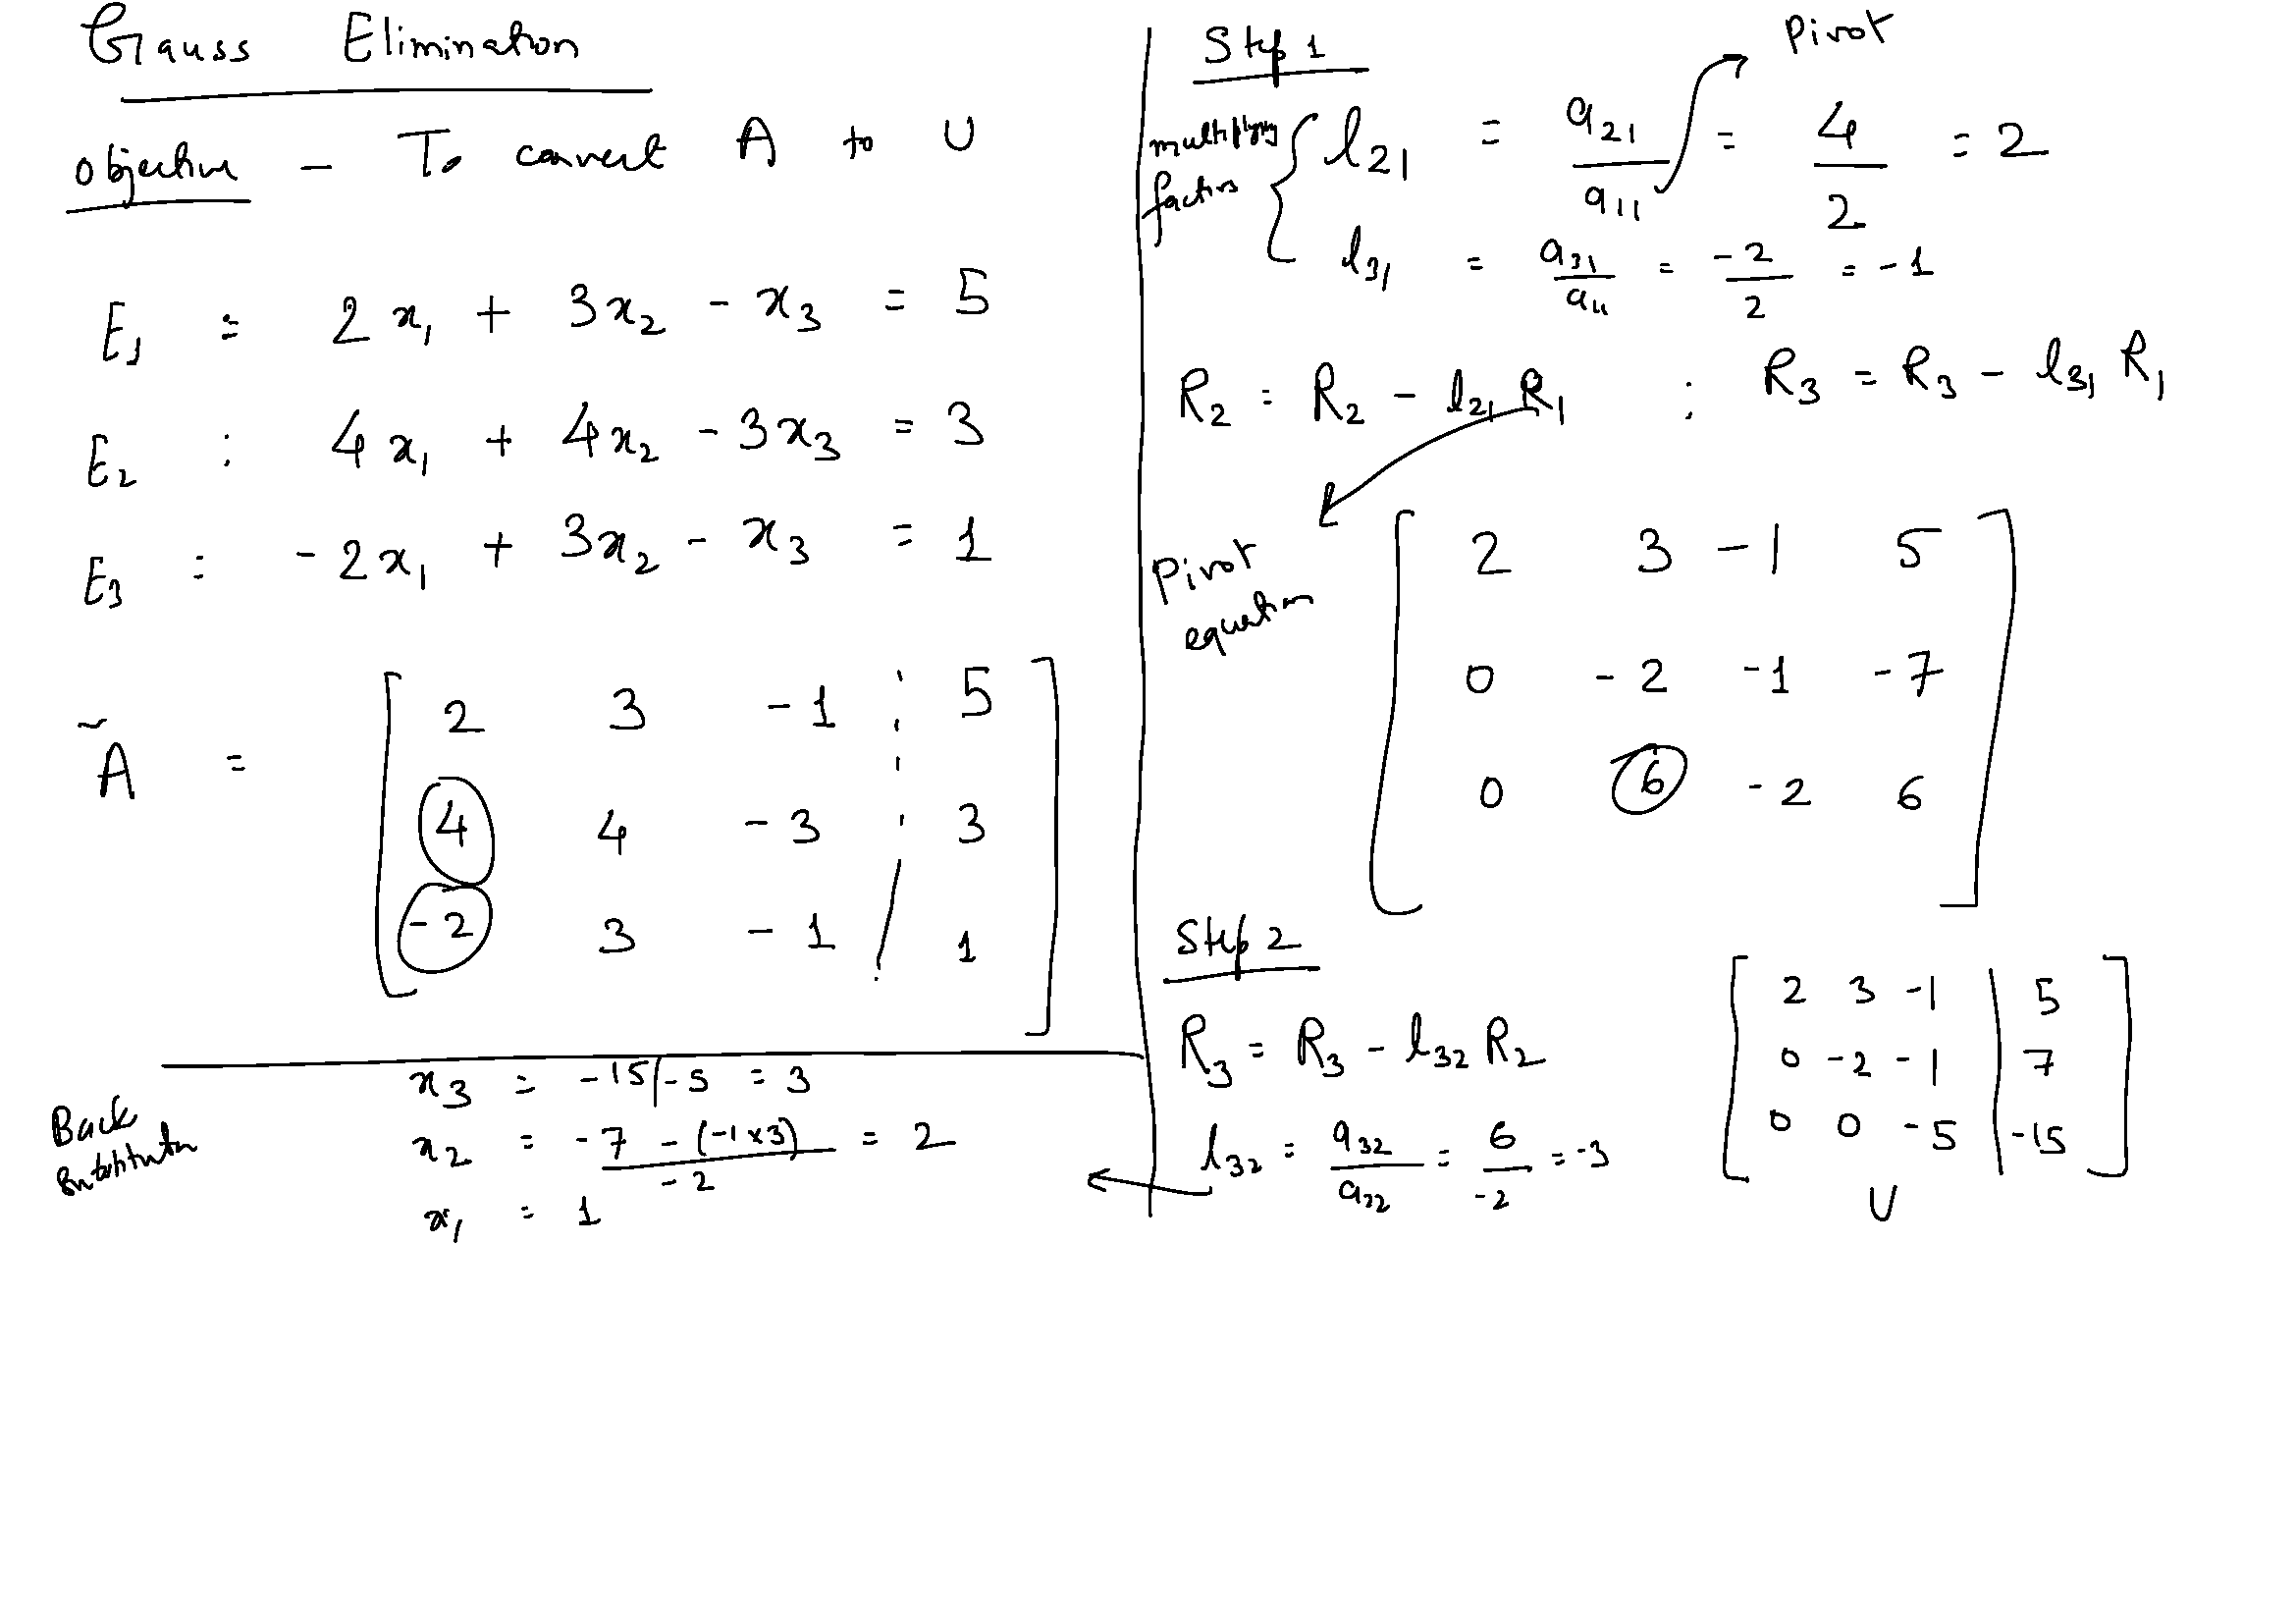 Gauss Elimination
Objective - To convert A to U
E1 : 2x1 + 3x2 - x3 = 5
E2 : 4x1 + 4x2 - 3x3 = 3
E3 : -2x1 + 3x2 - x3 = 1
Ã = [ 2 3 -1 ¦ 5
4 4 -3 ¦ 3
-2 3 -1 ¦ 1 ]
Back Substitution
x3 = -15/-5 = 3
x2 = -7 - (-1x3) / -2 = 2
x1 = 1
Step 1
Pivot
multiplying factors { l21 = a21/a11 = 4/2 = 2
l31 = a31/a11 = -2/2 = -1
R2 = R2 - l21 R1 ; R3 = R3 - l31 R1
Pivot equation
[ 2 3 -1 5
0 -2 -1 -7
0 6 -2 6 ]
Step 2
R3 = R3 - l32 R2
l32 = a32/a22 = 6/-2 = -3
[ 2 3 -1 | 5
0 -2 -1 | 7
0 0 -5 | -15 ]
U